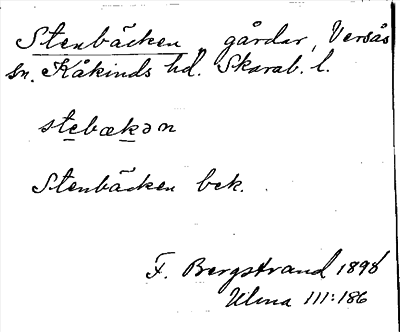 Stenbäcken, gårdar, Versås
sn. Kåkinds hd. Skarab. l.
stebækən
Stenbäcken bek.
F. Bergstrand 1898
Ulma 111:186